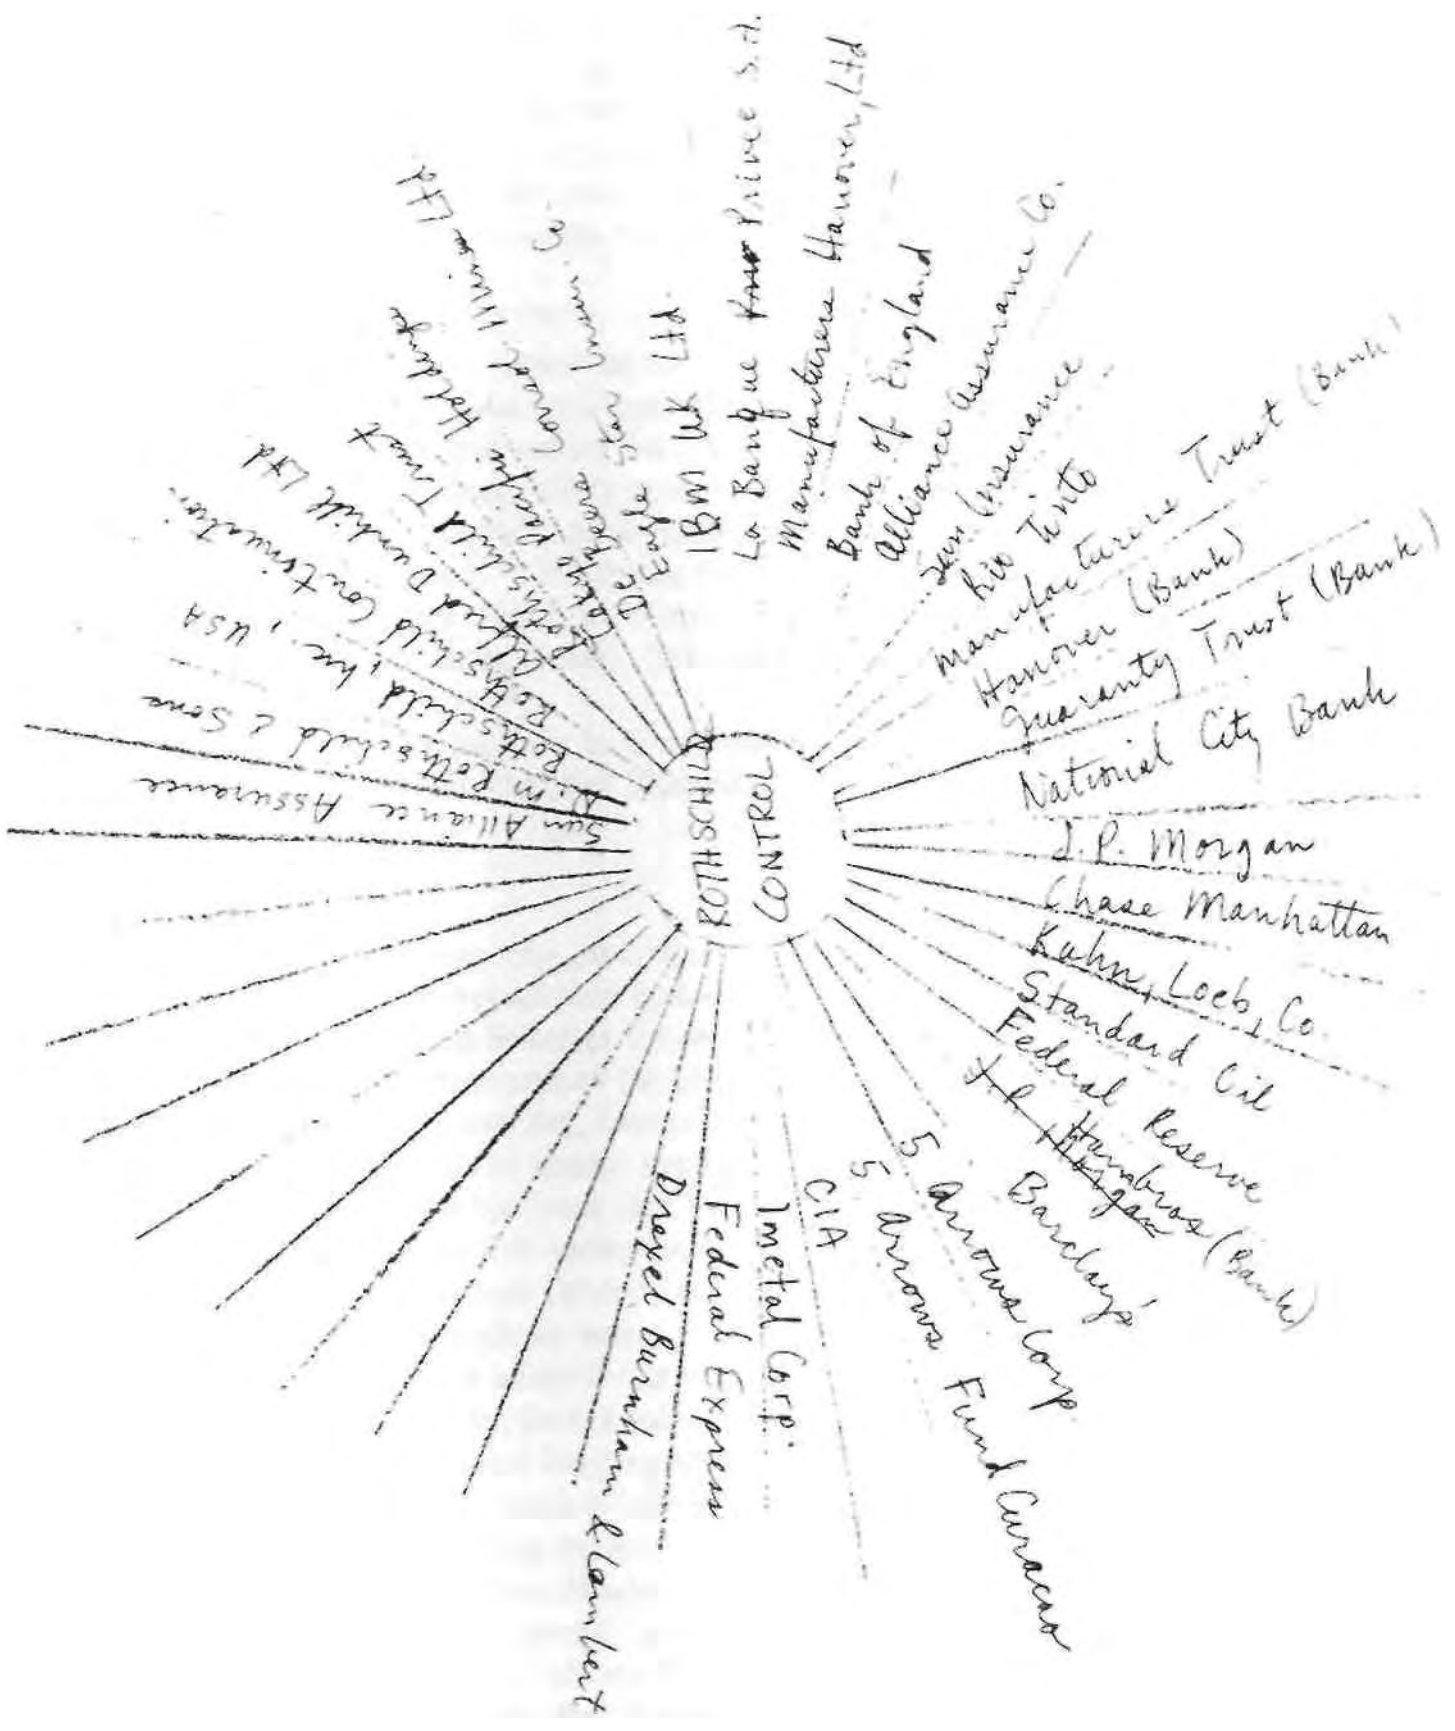 ROTHSCHILD
CONTROL
La Banque Privee S.A.
Manufacturers Hanover, Ltd
Bank of England
Alliance Assurance Co.
Sun Insurance
Rio Tinto
Manufacturers Trust (Bank)
Hanover (Bank)
Guaranty Trust (Bank)
National City Bank
J.P. Morgan
Chase Manhattan
Kuhn, Loeb, & Co.
Standard Oil
Federal Reserve
J.P. Morgan
Hambros (Bank)
Barclay's
5 Arrows Corp
5 Arrows Fund Curacao
CIA
Imetal Corp.
Federal Express
Drexel Burnham & Lambert
Sun Alliance Assurance
N.M Rothschild & Sons
Rothschild, Inc., USA
Rothschild Continuation
Alfred Dunhill Ltd
Rothschild Trust
Tokyo Pacific Holdings
De Beers
Eagle Star Insur. Co.
IBM UK Ltd.